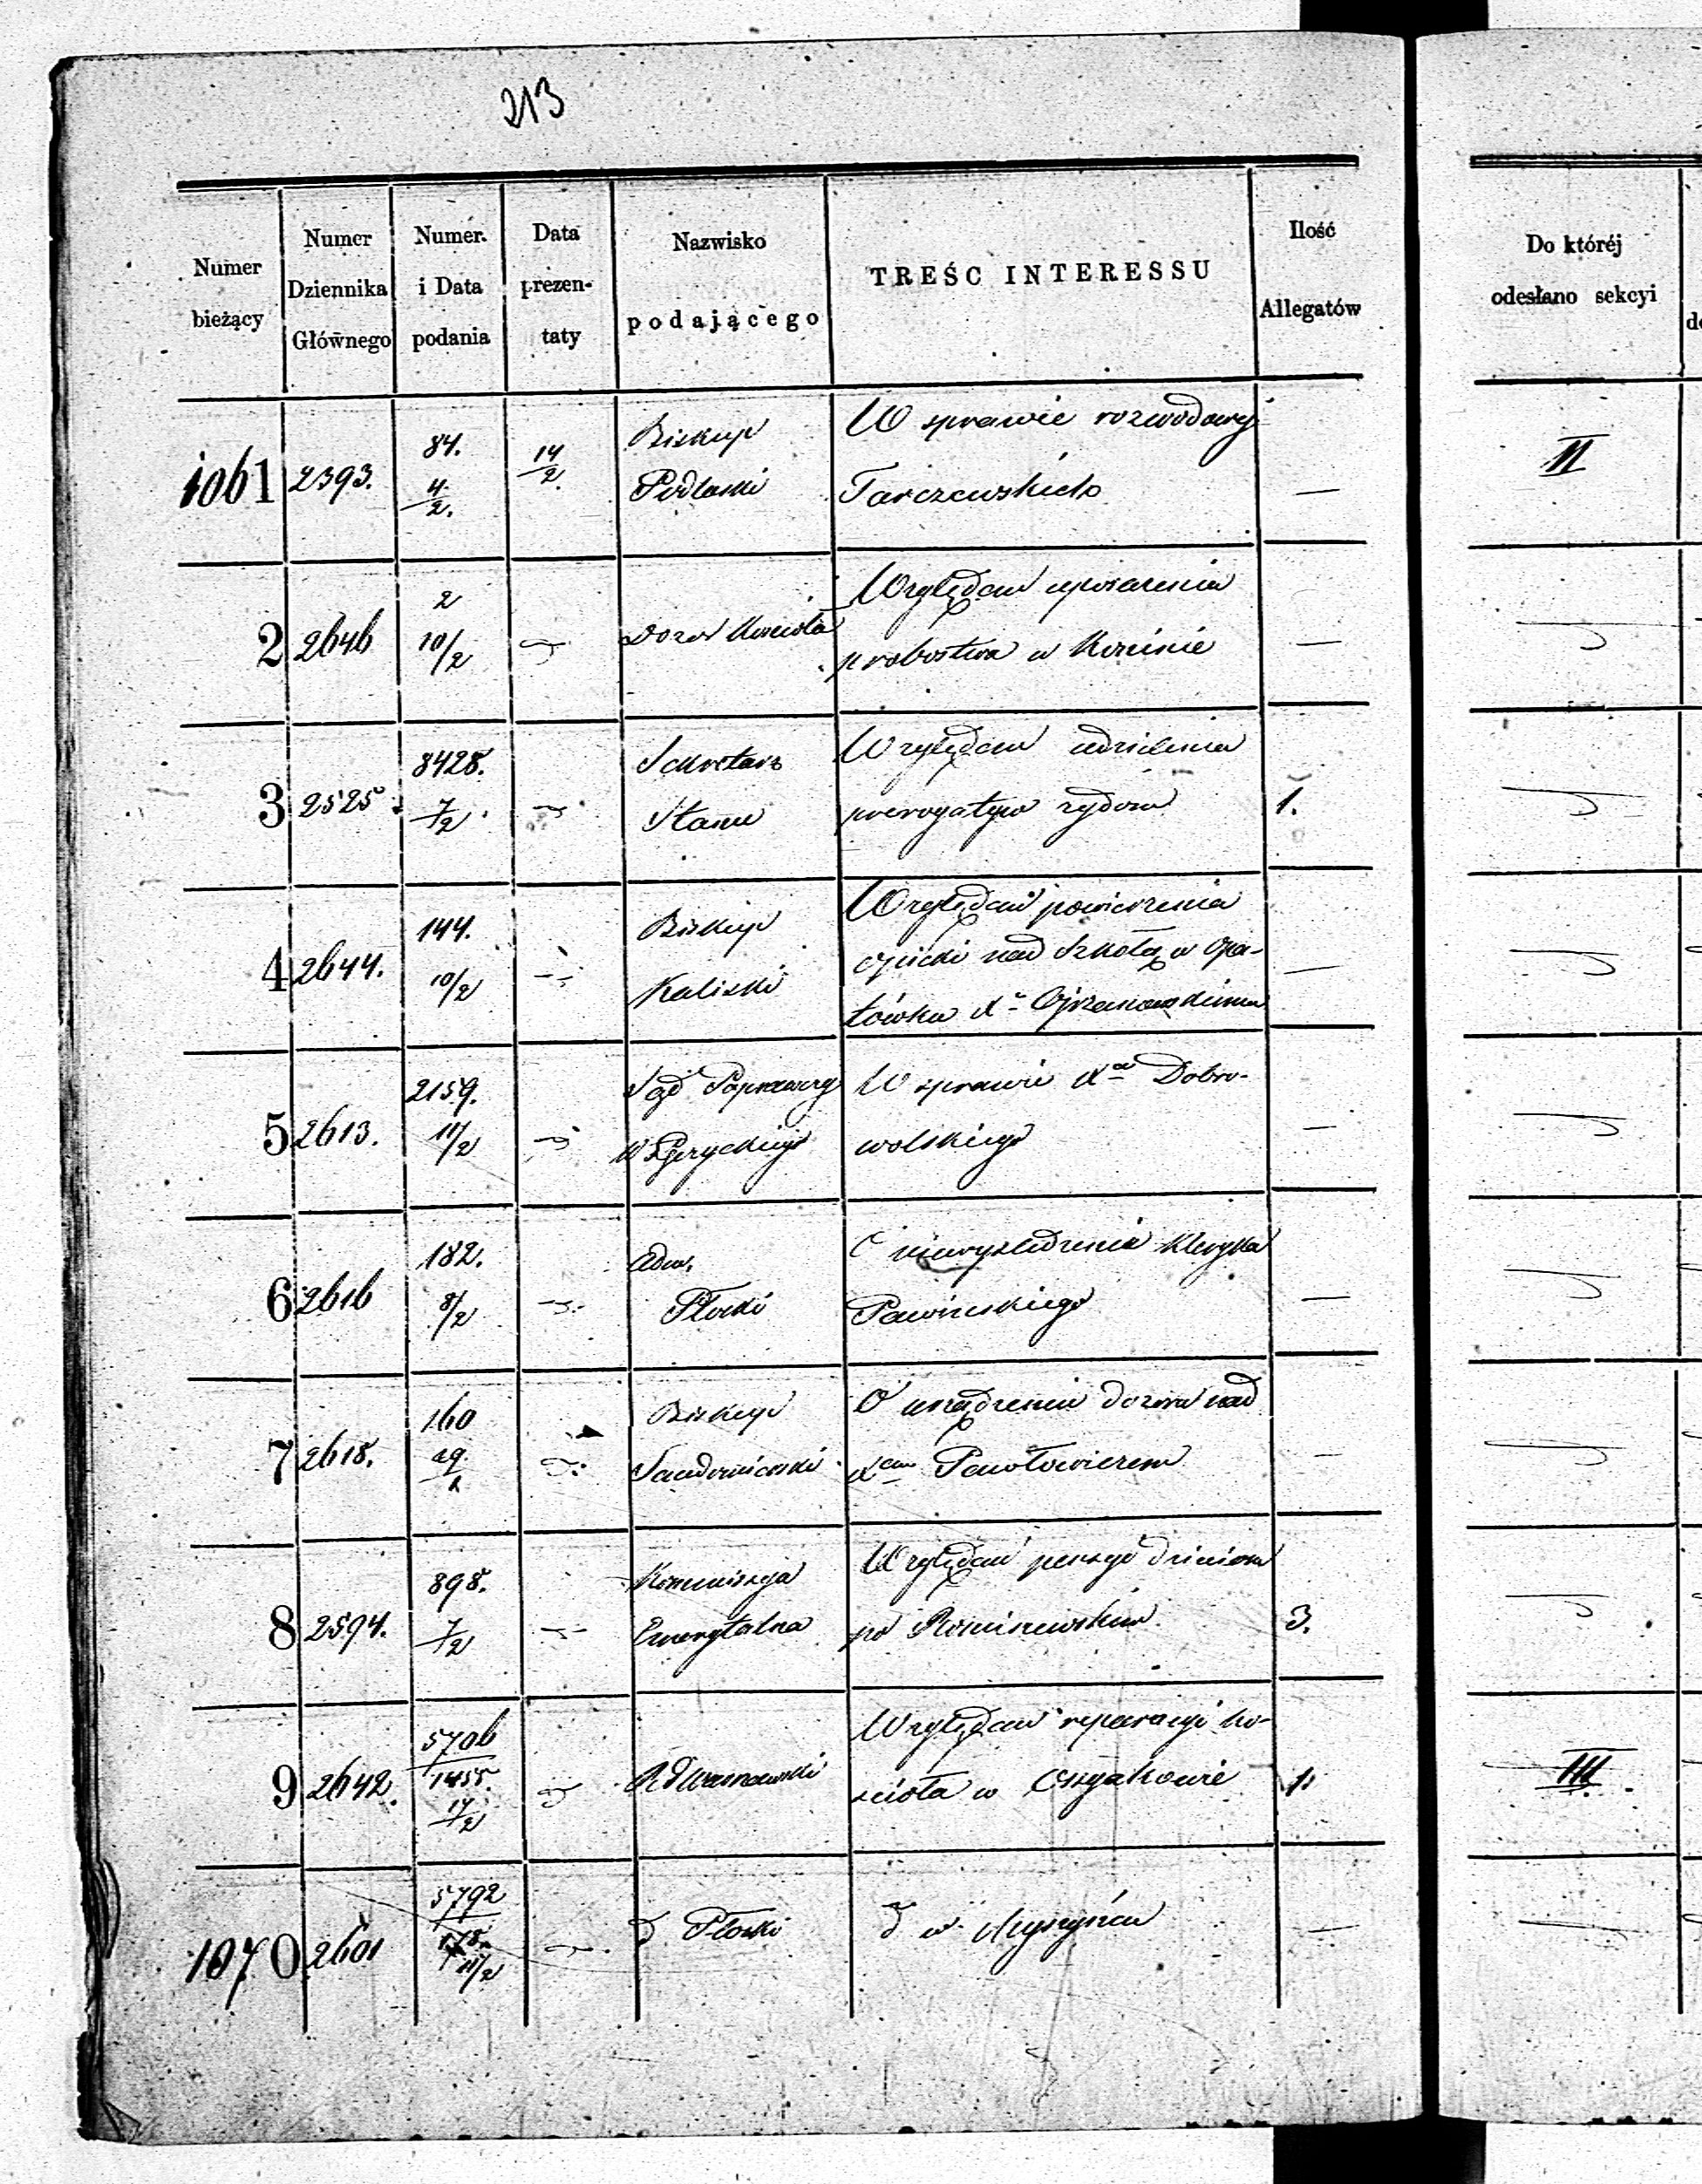 213
Numer bieżący
Numer Dziennika Głównego
Numer. i Data podania
Data prezen- taty
Nazwisko podającego
TREŚC INTERESSU
Ilość Allegatów
Do któréj odesłano sekcyi
1061 2393. 84. 4/2. 14/2. Biskup Podlaski
W sprawie rozwodowej
Tarczewskich —
II
2 2646 2 10/2 Dozór Kościoła
Względem uposażenia
probostwa w —
3 2525 8428. 7/2 Sekretarz Stanu
Względem udzielenia
prerogatyw żydom 1.
4 2644. 144. 10/2 Biskup Kaliski
Względem powierzenia
opieki nad Szkołą w Opa-
tówku X. —
5 2613. 2159. 11/2 Sąd Poprawczy
W sprawie Xa Dobro-
wolskiego —
6 2616 182. 8/2 Adm. Płocki
O niewyśledzeniu kleryka
Pawińskiego —
7 2618. 160 29/1 Biskup Sandomierski
O urządzeniu dozoru nad
Xem Pawłowiczem —
8 2594. 898. 7/2 Kommissya Emerytalna
Względem pensyi dzieciom
po 3.
9 2642. 5706 1455. 17/2 Rd Warszawski
Względem reparacyi ko-
ścioła w Osyakowie 1.
III.
1070 2601 5792 11/2 d Płocki
d w Myszyńcu —